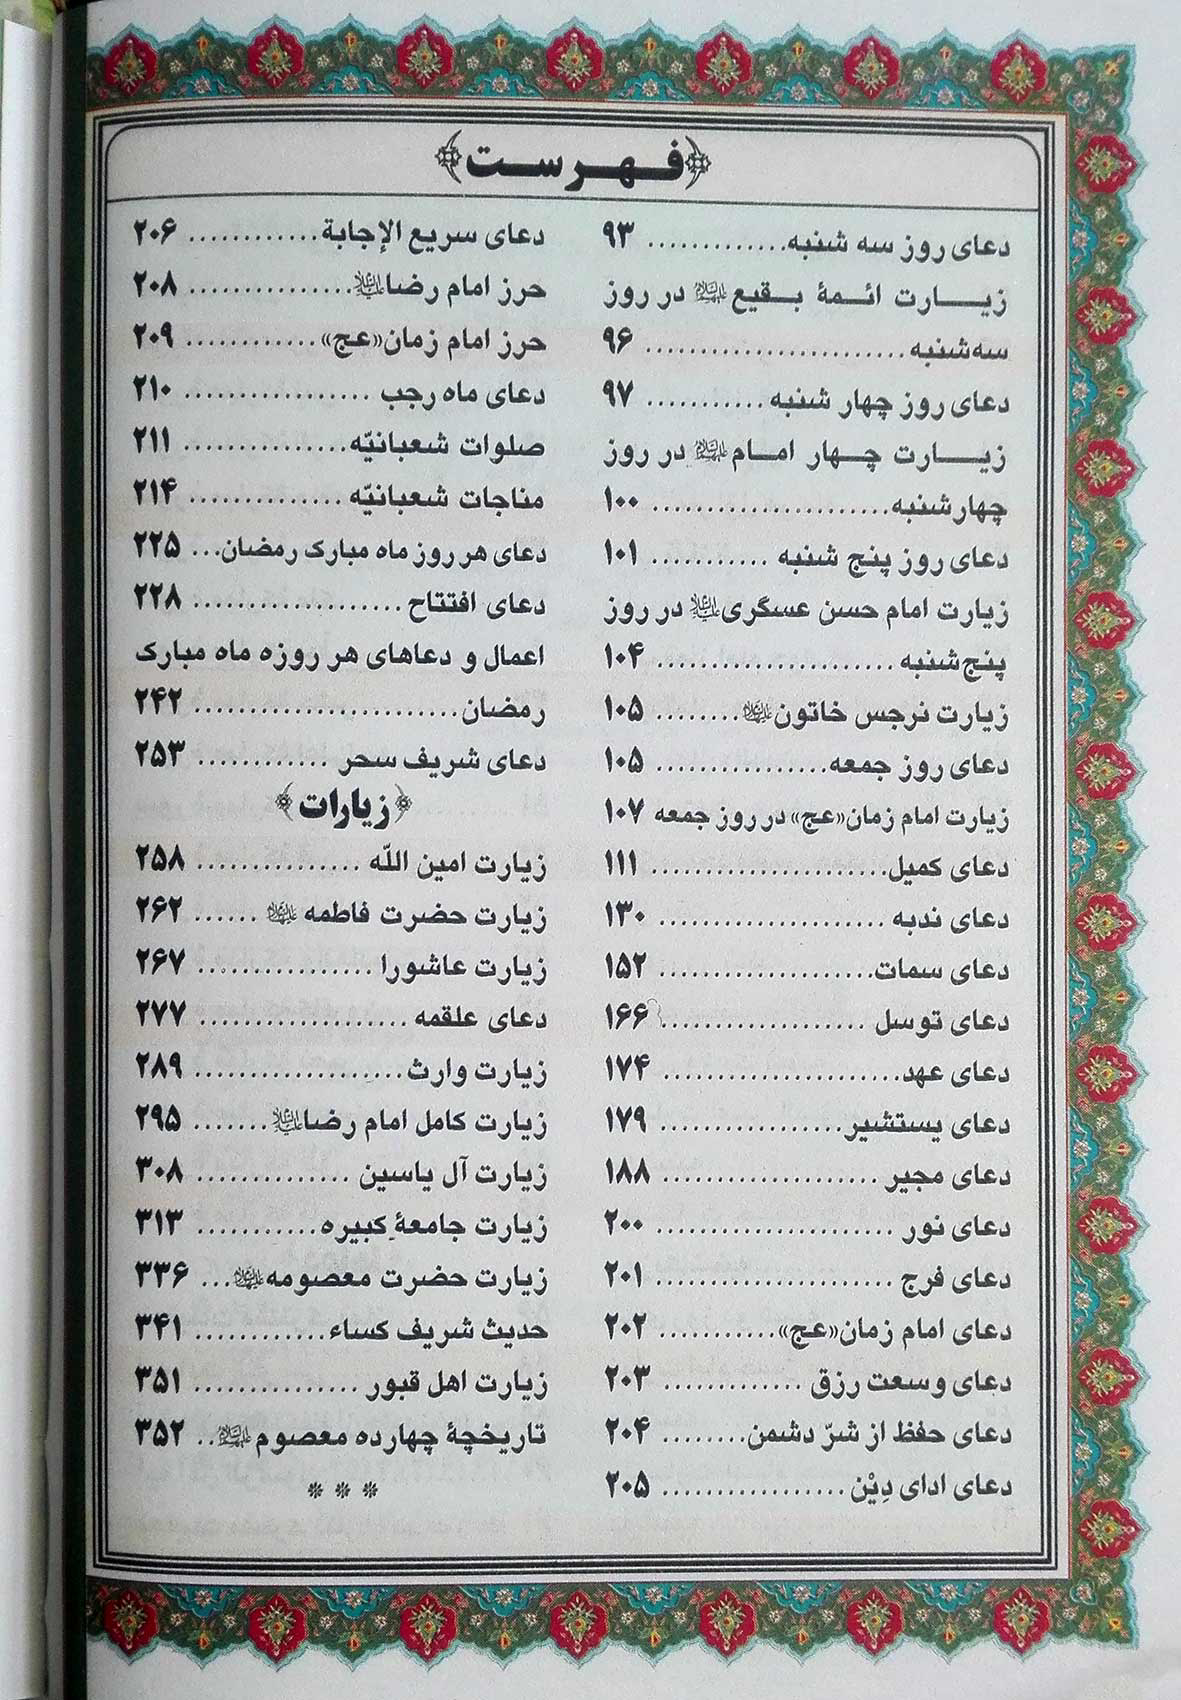 فهرست
دعای روز سه شنبه............ ۹۳
زیارت ائمهٔ بقیع علیهم‌السلام در روز
سه‌شنبه........................ ۹۶
دعای روز چهار شنبه ........... ۹۷
زیارت چهار امام علیهم‌السلام در روز
چهارشنبه...................... ۱۰۰
دعای روز پنج شنبه ........... ۱۰۱
زیارت امام حسن عسگری علیه‌السلام در روز
پنج‌شنبه...................... ۱۰۴
زیارت نرجس خاتون علیهاالسلام........ ۱۰۵
دعای روز جمعه................ ۱۰۵
زیارت امام زمان«عج» در روز جمعه ۱۰۷
دعای کمیل...................... ۱۱۱
دعای ندبه ..................... ۱۳۰
دعای سمات.................... ۱۵۲
دعای توسل ................... ۱۶۶
دعای عهد...................... ۱۷۴
دعای یستشیر................. ۱۷۹
دعای مجیر .................... ۱۸۸
دعای نور ...................... ۲۰۰
دعای فرج ..................... ۲۰۱
دعای امام زمان«عج»............ ۲۰۲
دعای وسعت رزق ............. ۲۰۳
دعای حفظ از شرّ دشمن........ ۲۰۴
دعای ادای دِیْن ................. ۲۰۵
دعای سریع الإجابة............ ۲۰۶
حرز امام رضا علیه‌السلام............... ۲۰۸
حرز امام زمان«عج» ............ ۲۰۹
دعای ماه رجب ................. ۲۱۰
صلوات شعبانیّه ............... ۲۱۱
مناجات شعبانیّه .............. ۲۱۴
دعای هر روز ماه مبارک رمضان... ۲۲۵
دعای افتتاح ................... ۲۲۸
اعمال و دعاهای هر روزه ماه مبارک
رمضان........................ ۲۴۲
دعای شریف سحر ............ ۲۵۳
زیارات
زیارت امین اللّه ............... ۲۵۸
زیارت حضرت فاطمه علیهاالسلام ...... ۲۶۲
زیارت عاشورا ................ ۲۶۷
دعای علقمه ................... ۲۷۷
زیارت وارث................... ۲۸۹
زیارت کامل امام رضا علیه‌السلام....... ۲۹۵
زیارت آل یاسین .............. ۳۰۸
زیارت جامعهٔ کبیره ........... ۳۱۳
زیارت حضرت معصومه علیهاالسلام... ۳۳۶
حدیث شریف کساء............ ۳۴۱
زیارت اهل قبور ............... ۳۵۱
تاریخچهٔ چهارده معصوم علیهم‌السلام.. ۳۵۲